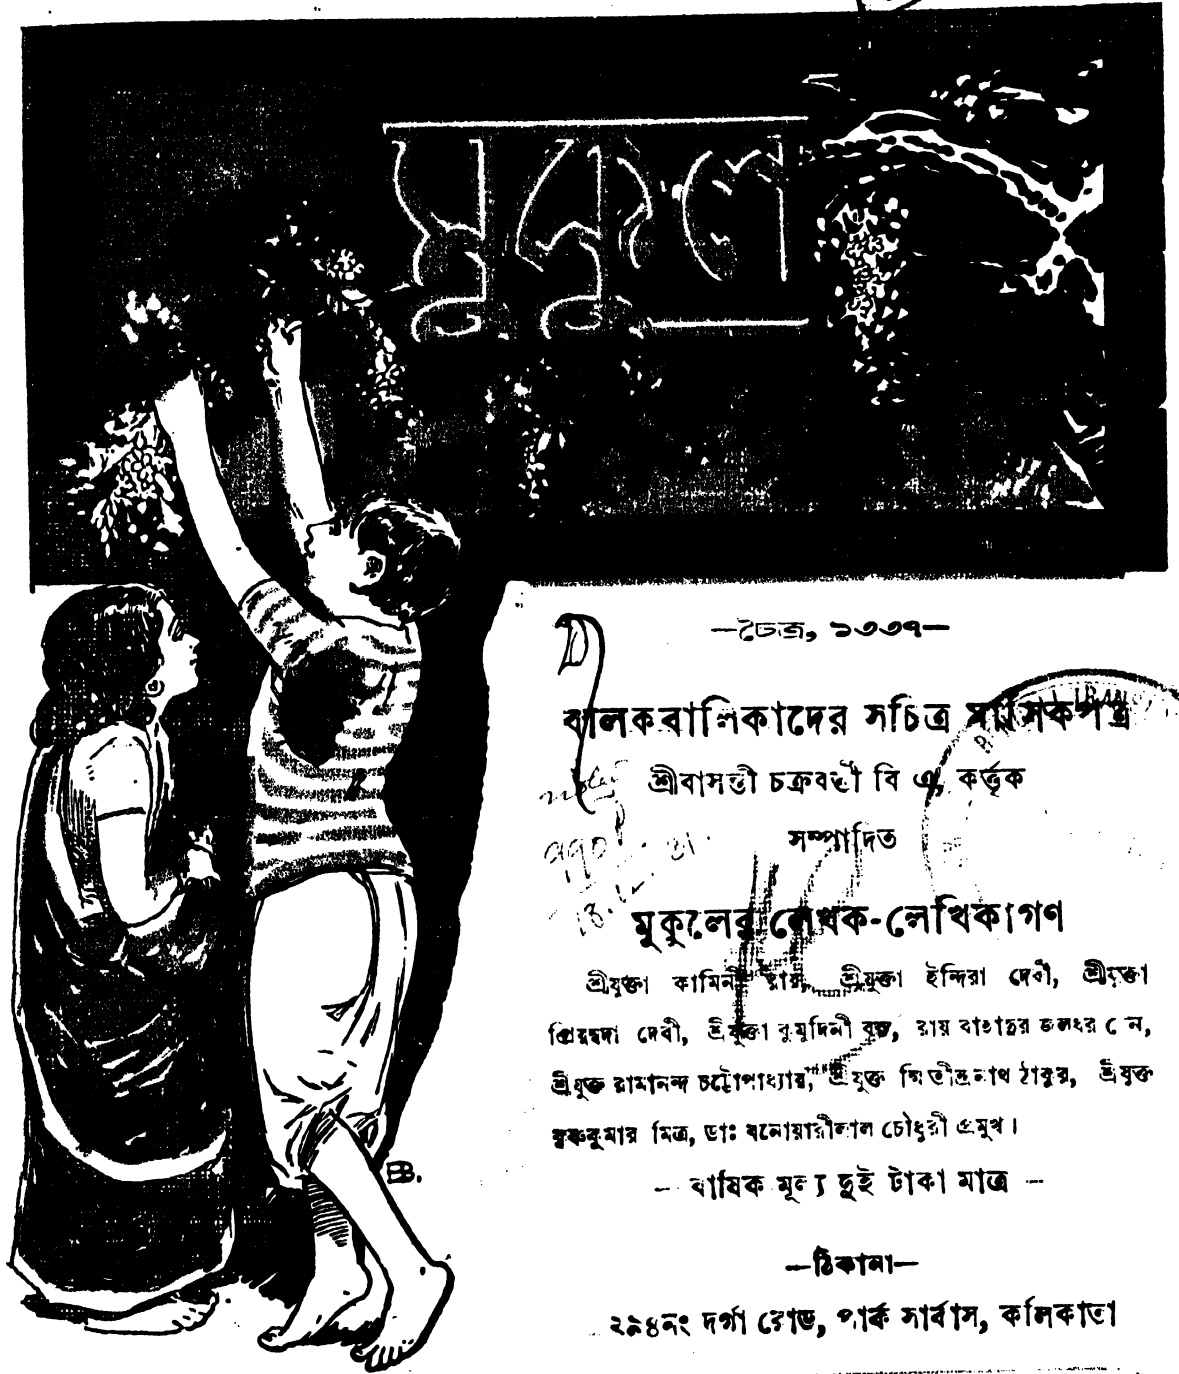 মুকুল
—চৈত্র, ১৩৩৭—
বালকবালিকাদের সচিত্র মাসিকপত্র
শ্রীবাসন্তী চক্রবর্ত্তী বি এ, কর্ত্তৃক
সম্পাদিত
মুকুলের লেখক-লেখিকাগণ
শ্রীযুক্তা কামিনী রায়, শ্রীযুক্তা ইন্দিরা দেবী, শ্রীযুক্তা
প্রিয়ম্বদা দেবী, শ্রীযুক্তা কুমুদিনী বসু, রায় বাহাদুর জলধর সেন,
শ্রীযুক্ত রামানন্দ চট্টোপাধ্যায়, শ্রীযুক্ত ক্ষিতীন্দ্রনাথ ঠাকুর, শ্রীযুক্ত
কৃষ্ণকুমার মিত্র, ডাঃ বনোয়ারীলাল চৌধুরী প্রমুখ।
— বার্ষিক মূল্য দুই টাকা মাত্র —
BB.
—ঠিকানা—
২৯৪নং দর্গা রোড, পার্ক সার্কাস, কলিকাতা